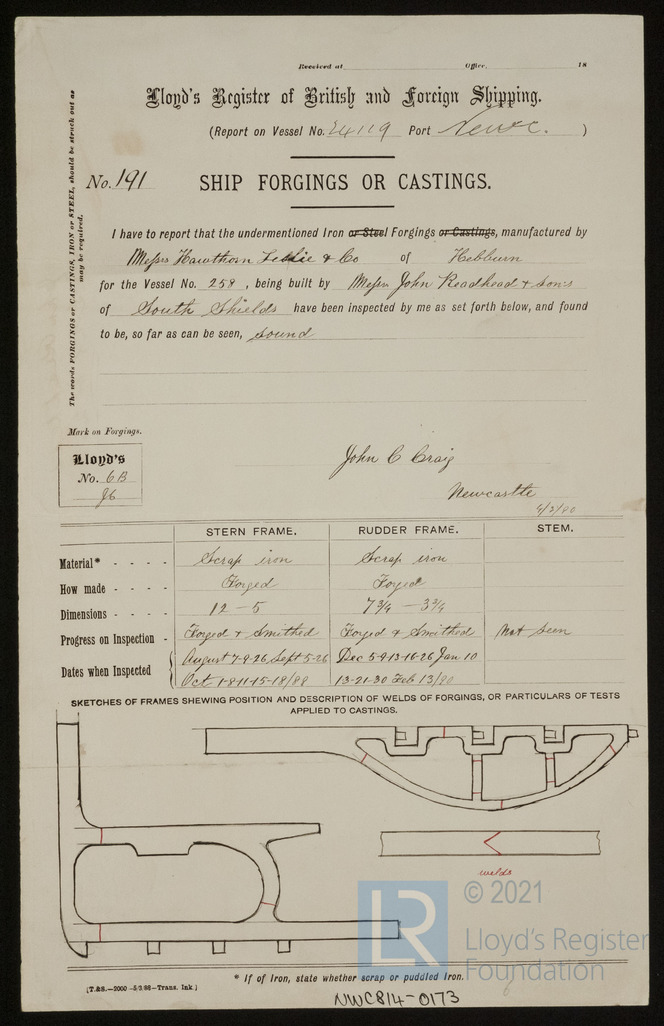 Received at Office, 18
Lloyd's Register of British and Foreign Shipping.
(Report on Vessel No. 24119 Port Newc. )
No. 191 SHIP FORGINGS OR CASTINGS.
The words FORGINGS or CASTINGS, IRON or STEEL, should be struck out as
may be required.
I have to report that the undermentioned Iron or Steel Forgings or Castings, manufactured by
Messrs Hawthorn Leslie & Co of Hebburn
for the Vessel No. 258 , being built by Messrs John Readhead & Sons
of South Shields have been inspected by me as set forth below, and found
to be, so far as can be seen, sound
Mark on Forgings.
Lloyd's
No. 6B
John C Craig
Newcastle
STERN FRAME. RUDDER FRAME. STEM.
Material* - - - - Scrap iron Scrap iron
How made - - - - Forged Forged
Dimensions - - - - 12 - 5 7¾ - 3¾
Progress on Inspection - Forged & Smithed Forged & Smithed Not seen
Dates when Inspected August 7-9-26, Sept 5-26 Dec 5-9-13-16-26 Jan 10
Oct 1-8-11-15-18/89 13-21-30 Feb 13/90
SKETCHES OF FRAMES SHEWING POSITION AND DESCRIPTION OF WELDS OF FORGINGS, OR PARTICULARS OF TESTS
APPLIED TO CASTINGS.
welds
LR © 2021
Lloyd's Register
Foundation
* If of Iron, state whether scrap or puddled Iron.
[T.&S.—2000—5/3/88—Trans. Ink.]
NWC814-0173